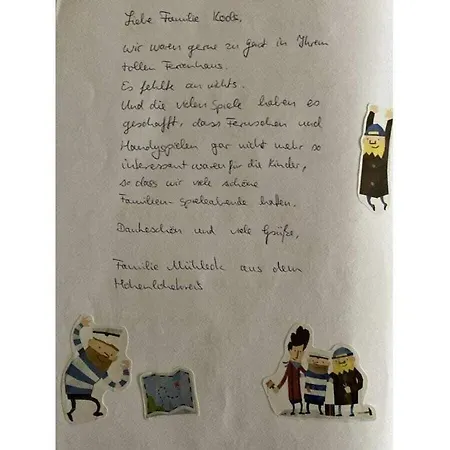 Liebe Familie Koch,
wir waren gerne zu Gast in Ihrem
tollen Ferienhaus.
Es fehlte an nichts.
Und die vielen Spiele haben es
geschafft, dass Fernsehen und
Handyspielen gar nicht mehr so
interessant waren für die Kinder,
so dass wir viele schöne
Familien-Spieleabende hatten.
Dankeschön und viele Grüße,
Familie Mühleck aus dem
Hohenlohekreis